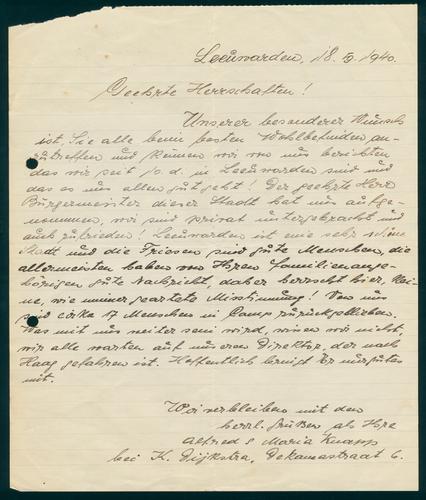 Leeuwarden, 18.5.1940.
Geehrte Herrschaften!
Unserer besonderer Wunsch
ist. Sie alle beim besten Wohlbefinden an-
zutreffen und können wir von uns berichten
das wir seit 10. d. in Leeuwarden sind und
das es uns allen gut geht! Der geehrte Herr
Bürgermeister dieser Stadt hat uns aufge-
nommen, wir sind privat untergebracht und
auch zufrieden! Leeuwarden ist eine sehr schöne
Stadt und die Friesen sind gute Menschen, die
allermeisten haben von Ihren Familienange-
hörigen gute Nachricht, daher herrscht hier, kei-
ne, wie immer geartete Misstimmung! Von uns
sind cirka 17 Menschen in Camp zurückgeblieben.
Was mit uns weiter sein wird, wissen wir nicht,
wir alle warten auf unseren Direktor, der nach
Haag gefahren ist. Hoffentlich bringt Er nur gutes
mit.
Wir verbleiben mit den
herzl. Grüßen als Ihre
Alfred & Maria
bei K. Dijkstra, Dekamastraat 6.